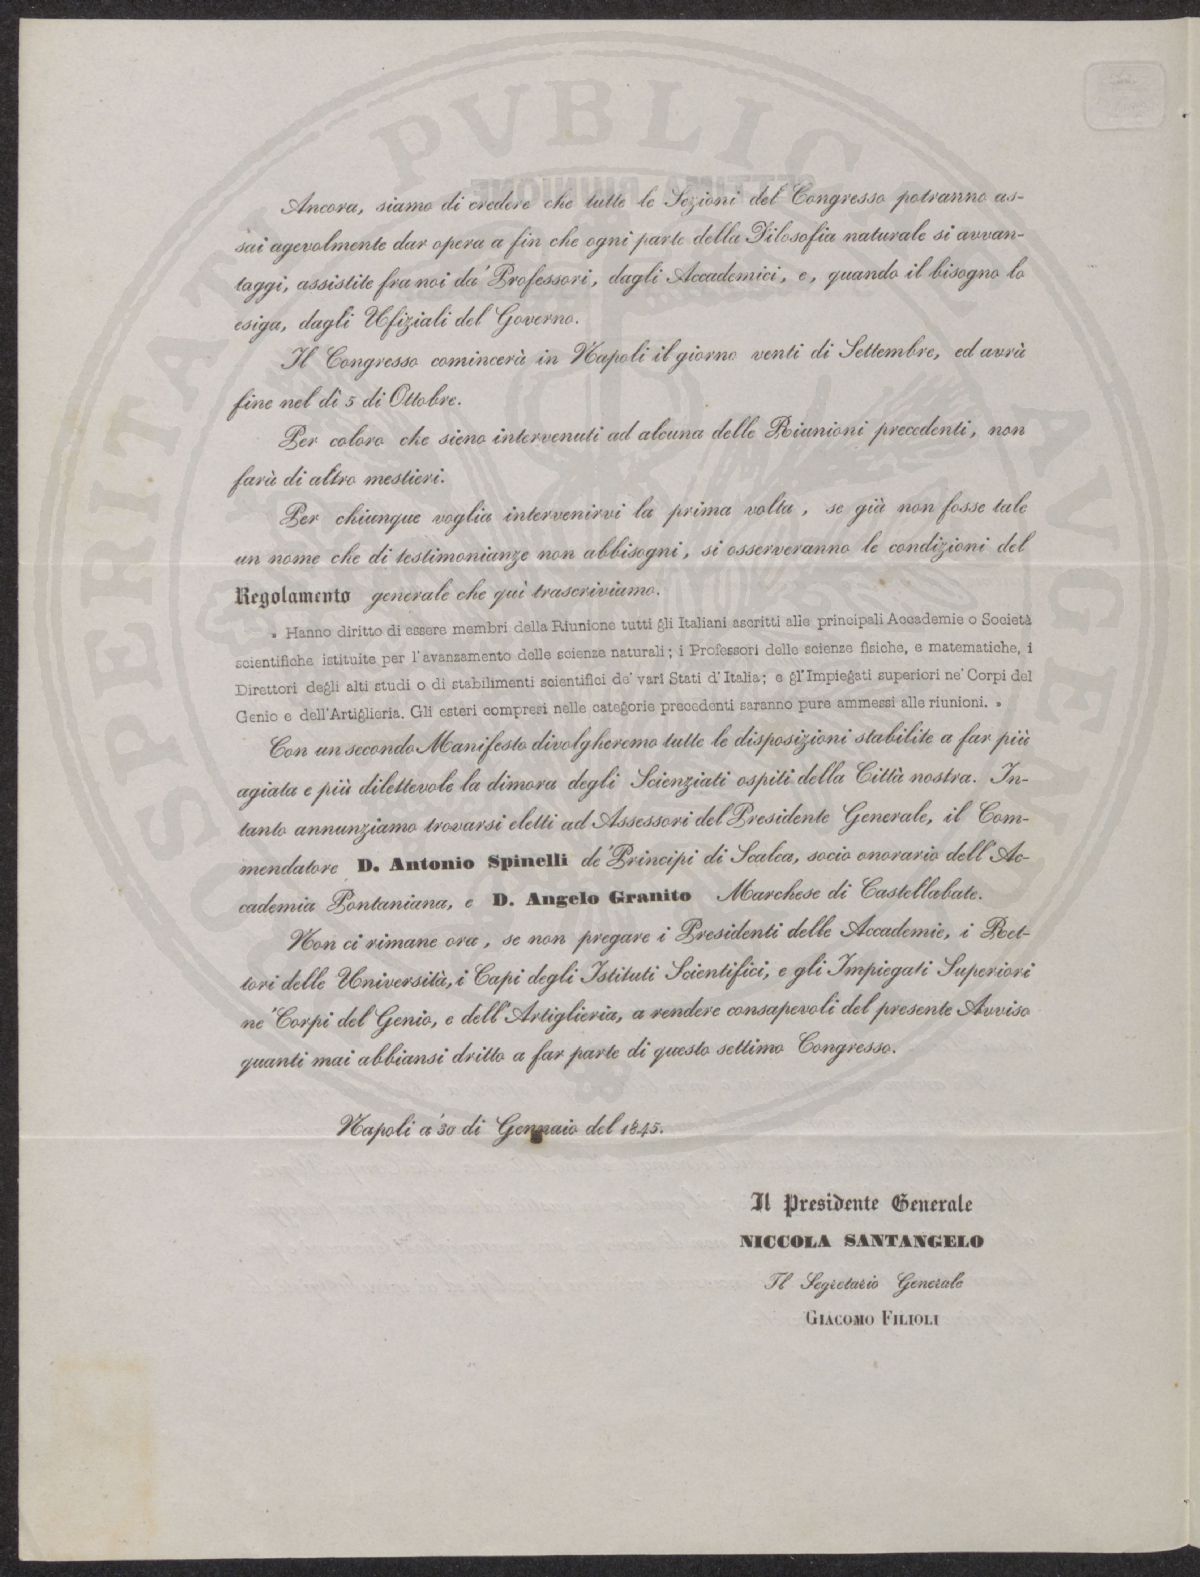 Ancora, siamo di credere che tutte le Sezioni del Congresso potranno as-
sai agevolmente dar opera a fin che ogni parte della Filosofia naturale si avvan-
taggi, assistite fra noi da' Professori, dagli Accademici, e, quando il bisogno lo
esiga, dagli Ufiziali del Governo.
Il Congresso comincerà in Napoli il giorno venti di Settembre, ed avrà
fine nel dì 5 di Ottobre.
Per coloro che sieno intervenuti ad alcuna delle Riunioni precedenti, non
farà di altro mestieri.
Per chiunque voglia intervenirvi la prima volta, se già non fosse tale
un nome che di testimonianze non abbisogni, si osserveranno le condizioni del
Regolamento generale che quì trascriviamo.
» Hanno diritto di essere membri della Riunione tutti gli Italiani ascritti alle principali Accademie o Società
scientifiche istituite per l'avanzamento delle scienze naturali; i Professori delle scienze fisiche, e matematiche, i
Direttori degli alti studi o di stabilimenti scientifici de' vari Stati d'Italia; e gl'Impiegati superiori ne' Corpi del
Genio e dell'Artiglieria. Gli esteri compresi nelle categorie precedenti saranno pure ammessi alle riunioni. »
Con un secondo Manifesto divolgheremo tutte le disposizioni stabilite a far più
agiata e più dilettevole la dimora degli Scienziati ospiti della Città nostra. In-
tanto annunziamo trovarsi eletti ad Assessori del Presidente Generale, il Com-
mendatore D. Antonio Spinelli de' Principi di Scalea, socio onorario dell'Ac-
cademia Pontaniana, e D. Angelo Granito Marchese di Castellabate.
Non ci rimane ora, se non pregare i Presidenti delle Accademie, i Ret-
tori delle Università, i Capi degli Istituti Scientifici, e gli Impiegati Superiori
ne' Corpi del Genio, e dell'Artiglieria, a rendere consapevoli del presente Avviso
quanti mai abbiansi dritto a far parte di questo settimo Congresso.
Napoli a' 30 di Gennaio del 1845.
Il Presidente Generale
NICCOLA SANTANGELO
Il Segretario Generale
GIACOMO FILIOLI